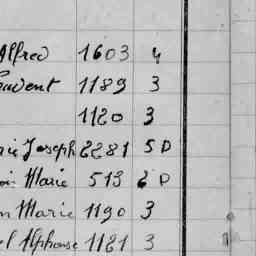 Alfred 1603 4
1189 3
1120 3
Joseph 2281 5 D
Marie 513 6 D
Marie 1190 3
Alphonse 1121 3